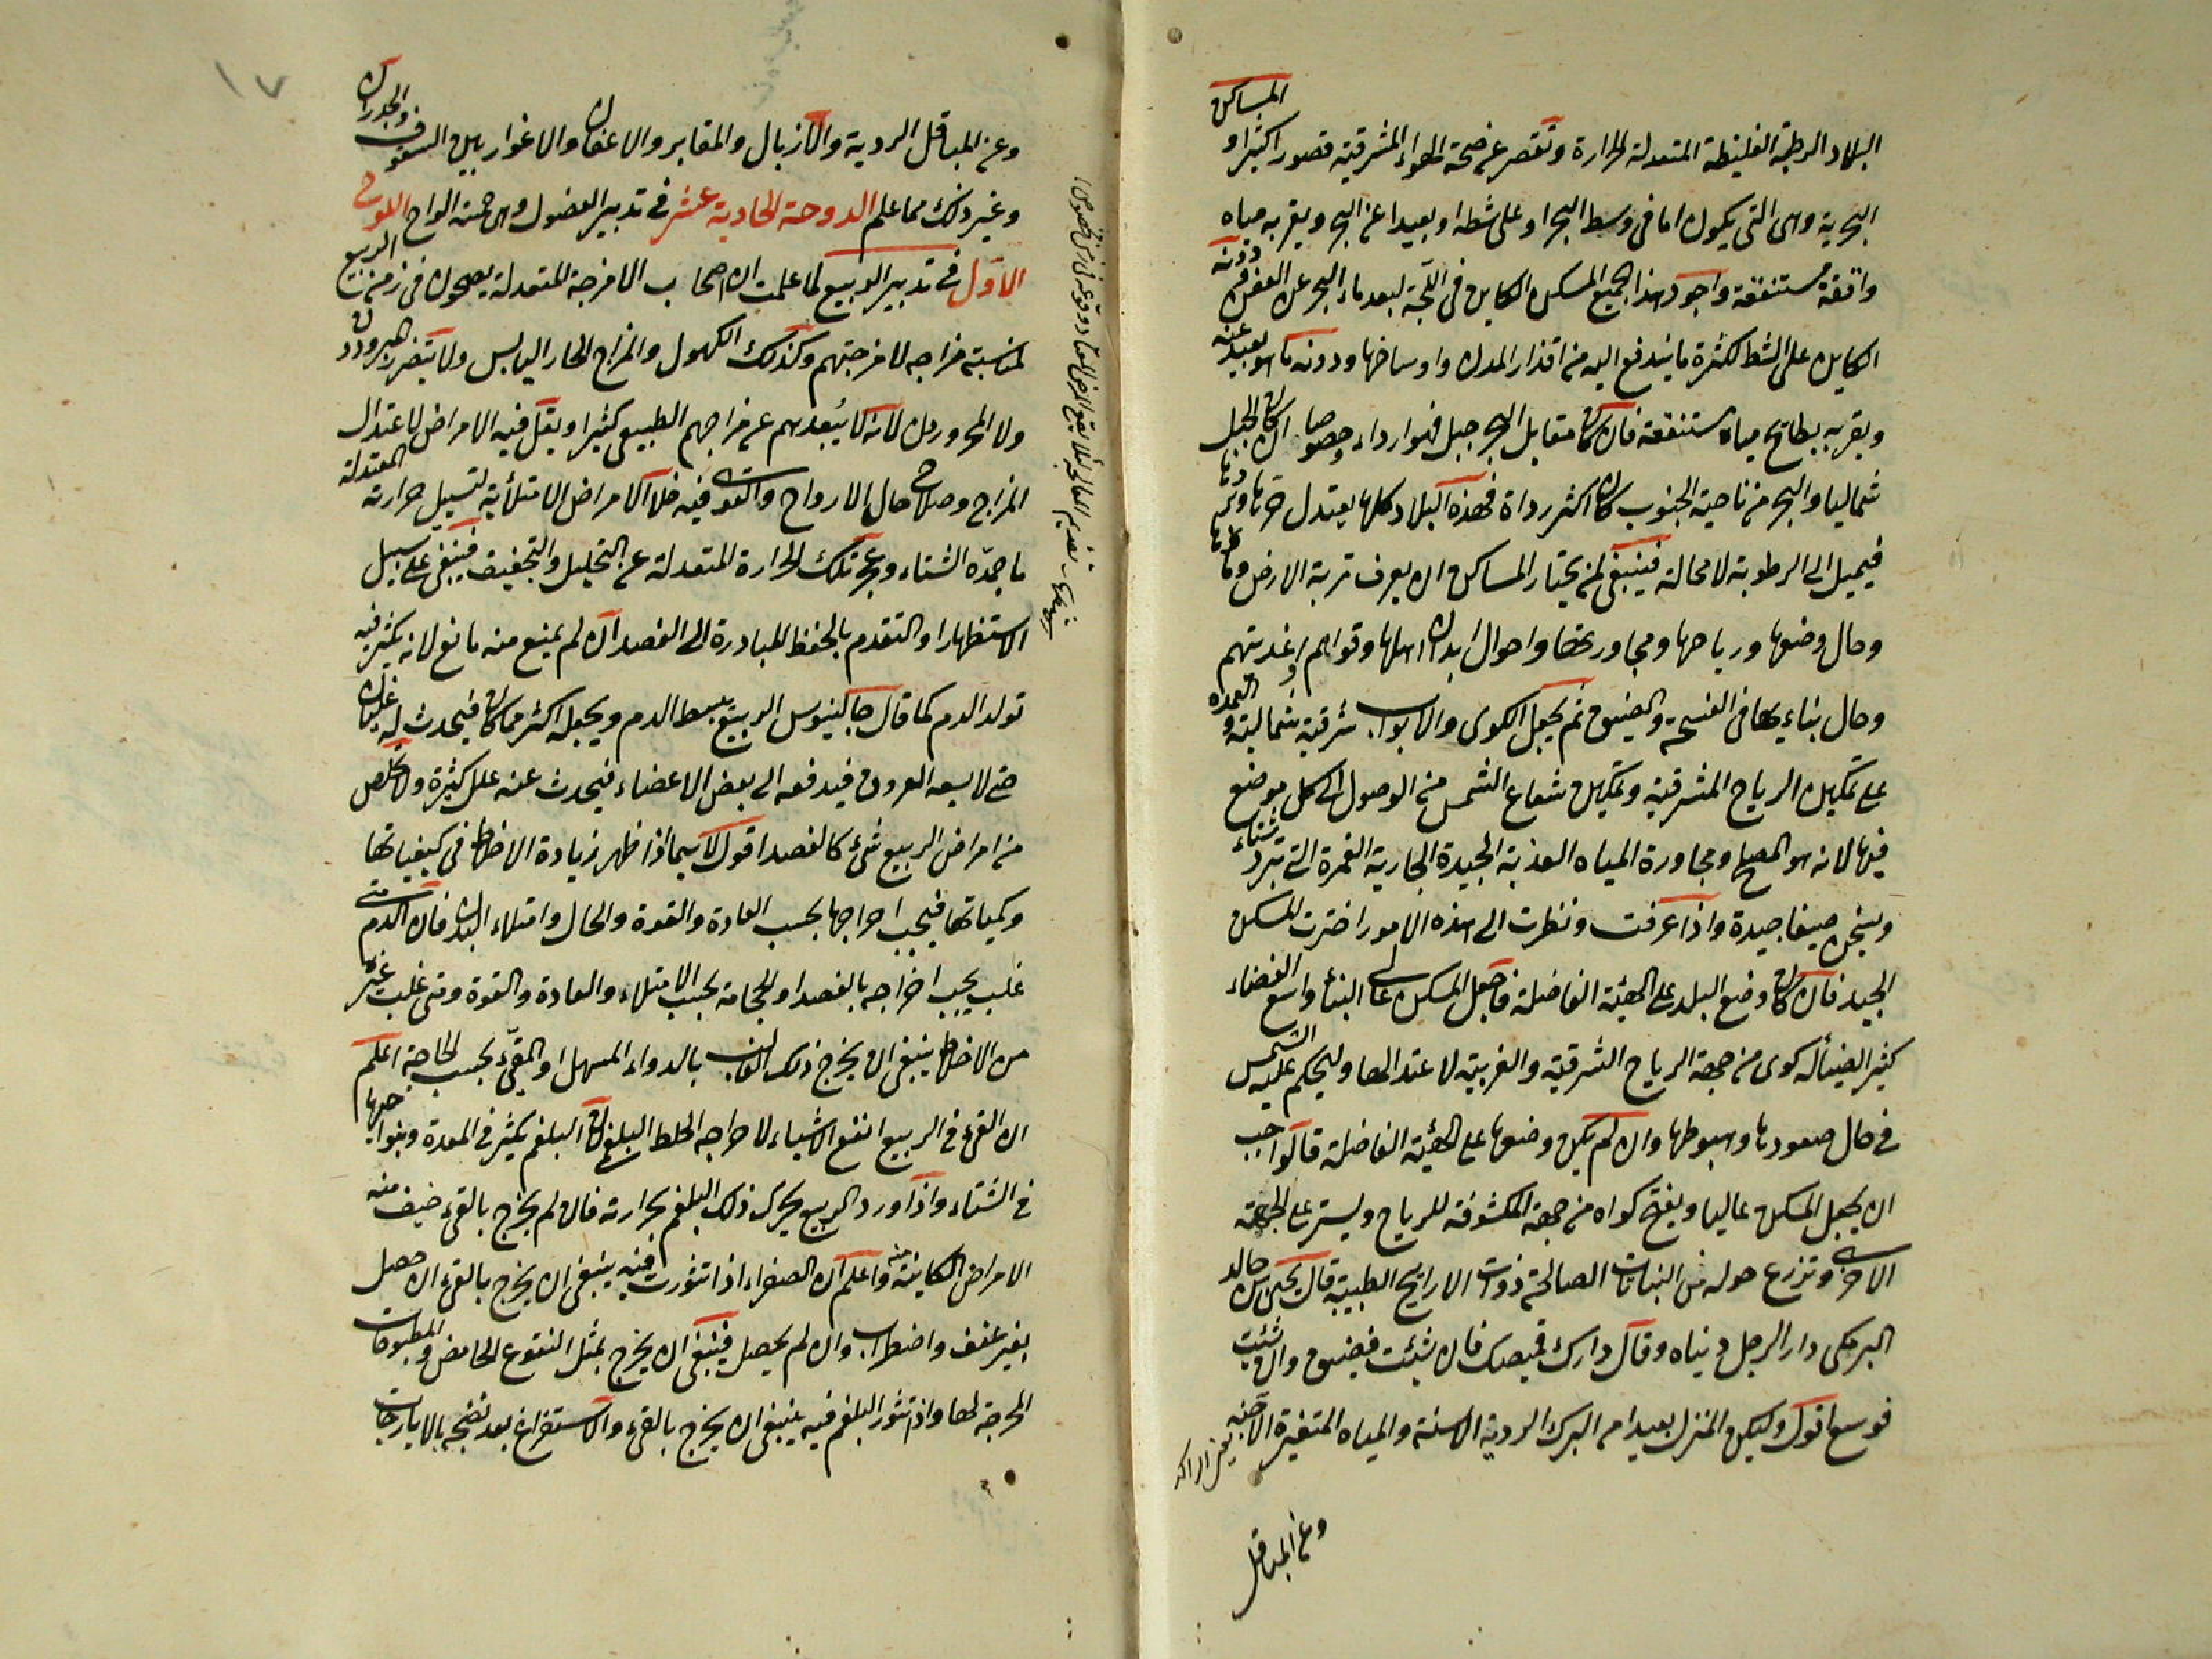 البلاد الرطبة الغليظة المتعدلة الحرارة وتقصر عن صحة الهواء المشرقية قصورا كثيرا و المساكن
البحرية وهى التى يكون اما فى وسط البحر او على شطه او بعيدا عن البحر ويقربه مياه
واقفة مستنقعة واجود هذا الجميع المسكن الكاين فى اللجة لبعد ماء البحر عن العفن ودونه
الكاين على الشط لكثرة ما يندفع اليه من اقذار المدن واوساخها ودونه ما هو بعيد عنه
ويقربه بطايح مياه مستنقعة فان كان مقابل البحر جبل فهو ارداء وخصوصا ان كان الجبل
شماليا والبحر من ناحية الجنوب كان اكثر رداة فهذه البلاد كلها يعتدل حرها وبردها
فيميل الى الرطوبة لا محالة فينبغى لمن يختار المساكن ان يعرف تربة الارض وماءها
وحال وضعها ورياحها ومجاورتها واحوال ابدان اهلها وقواهم واغذيتهم
وحال بناءها فى الفسحة والضيق ثم يجعل الكوى والابواب شرقية شمالية والعمدة
على تمكين الرياح المشرقية وتمكين شعاع الشمس من الوصول الى كل موضع
فيها لانه هو المصلح ومجاورة المياه العذبة الجيدة الجارية الغمرة التى تبرد شتاء
ويسخن صيفا جيدة واذا عرفت ونظرت الى هذه الامور اخترت المسكن
الجيد فان كان وضع البلد على الهيئة الفاضلة فاجعل المسكن عالى البناء واسع الفضاء
كثير الضياء له كوى من جهة الرياح الشرقية والغربية لاعتدالها وليحكم عليه الشمس
فى حال صعودها وهبوطها وان لم يكن وضعها على الهيئة الفاضلة فالواجب
ان يجعل المسكن عاليا ويفتح كواه من جهة المكشوفة للرياح ويستر على الجهة
الاخرى وتزرع حوله من النباتات الصالحة ذوات الارايح الطيبة قال يحيى بن خالد
البرمكى دار الرجل دنياه وقال دارك قميصك فان شئت فضيق وان شئت
فوسع اقول وليكن المنزل بعيدا من البرك الردية الاسنة والمياه المتغيرة الآجنة
وعن المباقل
وعن المباقل الردية والازبال والمقابر والاعفان والاغوار بين السقوف والجدران
وغير ذلك مما علم الدوحة الحادية عشر فى تدبير الفصول وهى خمسة الواح اللوح
الاول فى تدبير الربيع لما علمت ان اصحاب الامزجة المتعدلة يصحون فى زمن الربيع
لمناسبة مزاجه لامزجتهم وكذلك الكهول والمزاج الحار اليابس ولا يتضرر المبرودون
ولا المحرورون لانه لا يبعدهم عن مزاجهم الطبيعى كثيرا ويقل فيه الامراض لاعتدال
المزاج وصلاح حال الارواح والقوى فيه خلا الامراض الامتلائية لتسييل حرارته المعتدلة
ما جمده الشتاء وعجز تلك الحرارة المتعدلة عن التحليل والتجفيف فينبغى على سبيل
الاستظهار او التقدم بالحفظ المبادرة الى الفصد ان لم يمنع منه مانع لانه يكثر فيه
تولد الدم كما قال جالينوس الربيع يبسط الدم ويجعله اكثر مما كان فيحدث له غليان
حتى لا يسعه العروق فيدفعه الى بعض الاعضاء فيحدث عنه علل كثيرة ولا يخلص
من امراض الربيع شئ كالفصد اقول لا سيما اذا ظهر زيادة الاخلاط فى كيفياتها
وكمياتها فيجب اخراجها بحسب العادة والقوة والحال وامتلاء البدن فان الدم متى
غلب يجب اخراجه بالفصد او الحجامة بحسب الامتلاء والعادة والقوة ومتى غلب غيره
من الاخلاط ينبغى ان يخرج ذلك الغالب بالدواء المسهل او المقىء بحسب الحاجة اعلم
ان القىء فى الربيع انفع الاشياء لاخراجه الخلط البلغمى لان البلغم يكثر فى المعدة ونواحيها
فى الشتاء واذا ورد الربيع يحرك ذلك البلغم بحرارته فان لم يخرج بالقىء خيف منه
الامراض الكاينة منه واعلم ان الصفراء اذا تثورت فيه ينبغى ان يخرج بالقىء ان حصل
بغير عنف واضطراب وان لم يحصل فينبغى ان يخرج بمثل النقوع الحامض والمطبوخات
المخرجة لها واذا تثور البلغم فيه ينبغى ان يخرج بالقىء والاستفراغ بعد نضجه بالايارجات
١٧